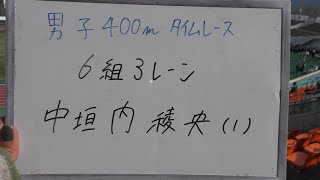 男子400mタイムレース
6組3レーン
中垣内 綾央(1)